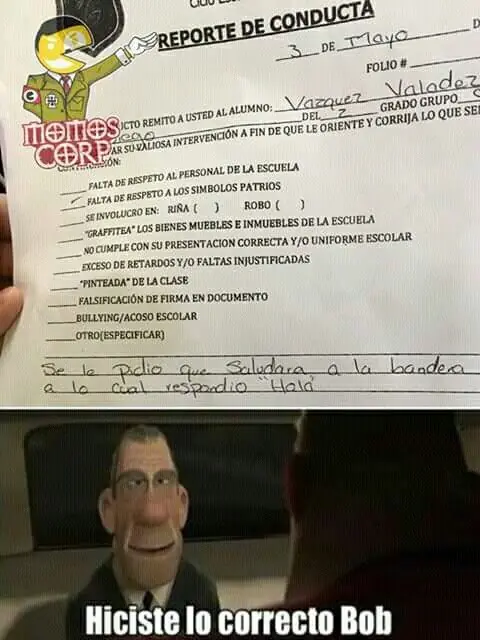 REPORTE DE CONDUCTA
3 DE Mayo
FOLIO #
MOMOS
CORP
CTO REMITO A USTED AL ALUMNO: Vazquez Valadez
DEL 2 GRADO GRUPO
AR SU VALIOSA INTERVENCIÓN A FIN DE QUE LE ORIENTE Y CORRIJA LO QUE
FALTA DE RESPETO AL PERSONAL DE LA ESCUELA
FALTA DE RESPETO A LOS SIMBOLOS PATRIOS
SE INVOLUCRO EN: RIÑA ( ) ROBO ( )
"GRAFFITEA" LOS BIENES MUEBLES E INMUEBLES DE LA ESCUELA
NO CUMPLE CON SU PRESENTACION CORRECTA Y/O UNIFORME ESCOLAR
EXCESO DE RETARDOS Y/O FALTAS INJUSTIFICADAS
"PINTEADA" DE LA CLASE
FALSIFICACIÓN DE FIRMA EN DOCUMENTO
BULLYING/ACOSO ESCOLAR
OTRO(ESPECIFICAR)
Se le Pidio que Saludara a la bandera
a lo cual respondio "Hola"
Hiciste lo correcto Bob